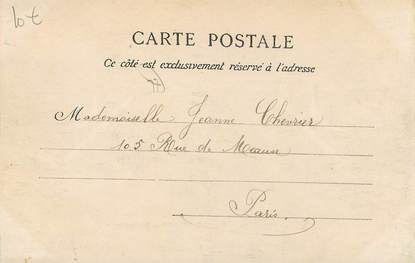 lot
CARTE POSTALE
Ce côté est exclusivement réservé à l'adresse
Mademoiselle Jeanne Chevrier
105 Rue de Meaux
Paris.